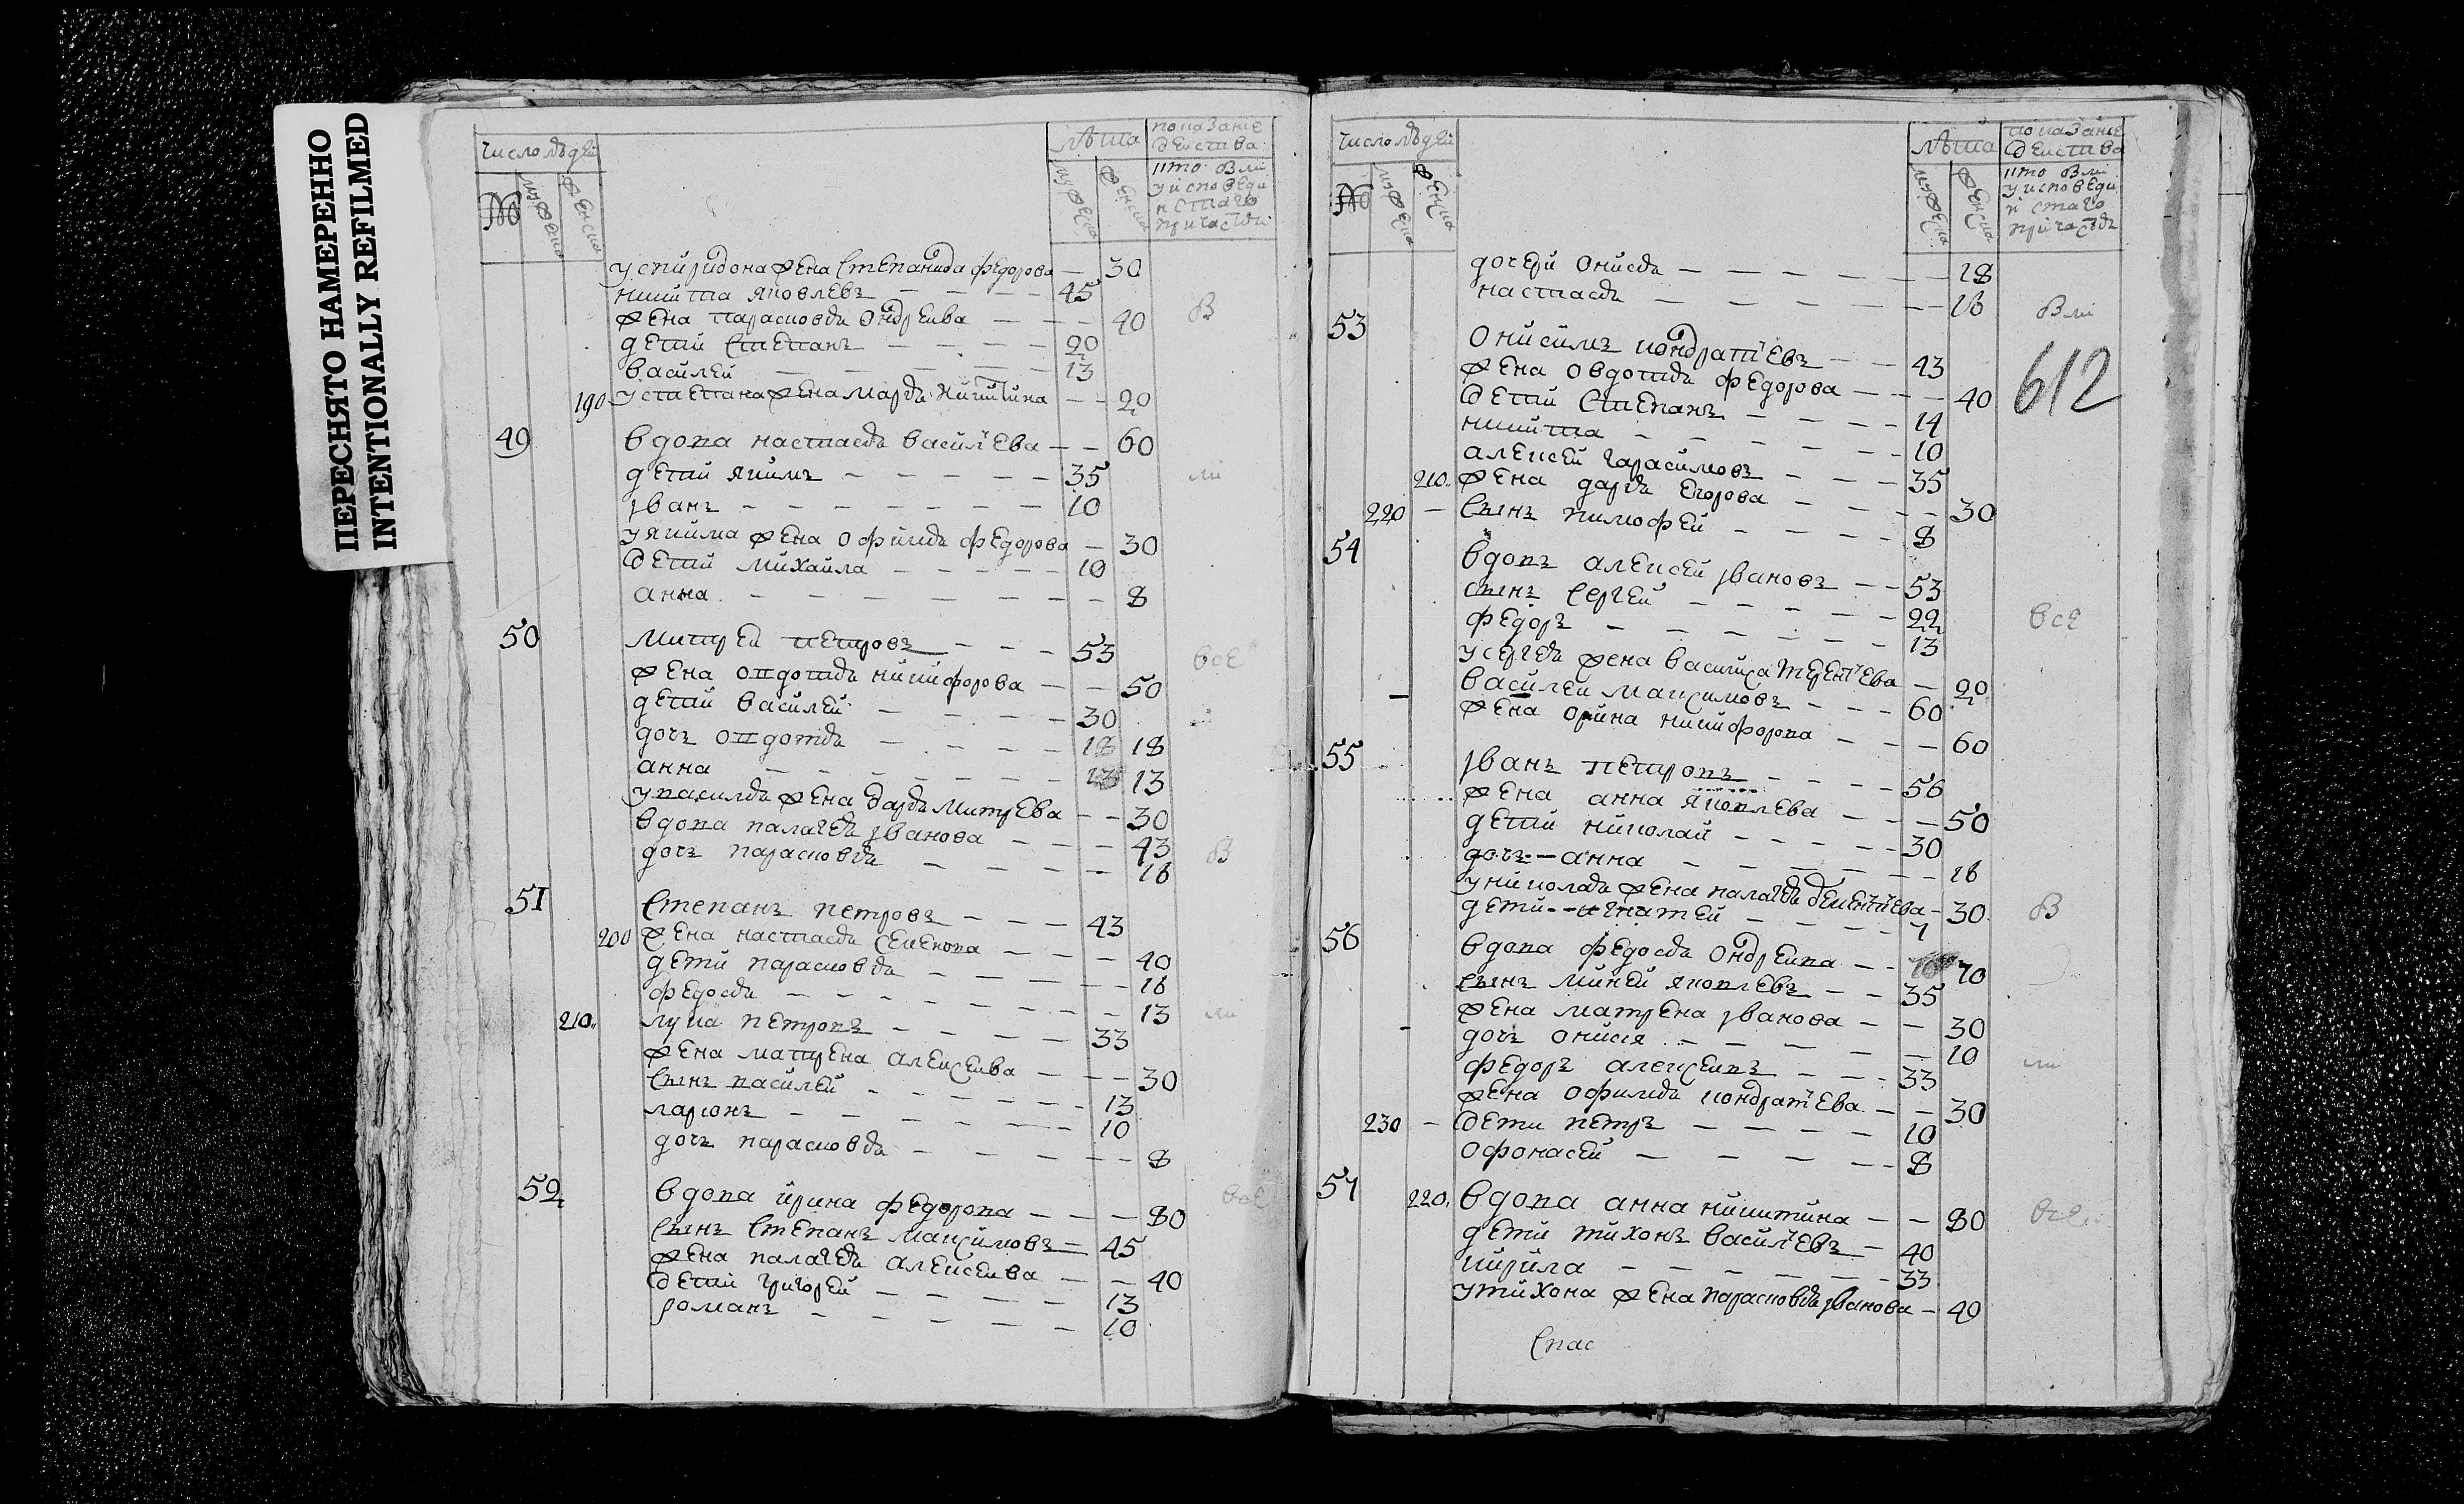 ПЕРЕСНЯТО НАМЕРЕННО
INTENTIONALLY REFILMED
число людей
лѣта
показание
действа
№
мужеска
женска
мужеска
женска
кто был
у исповеди
и стаго
причастия
у спиридона жена степанида федорова — 30
никита яковлевъ — 45
жена парасковья ондреива — 40 В
дети степанъ — 20
василей — 13
190 у степана жена марья никитина — 20
49 вдова настасья васильева — 60
дети якимъ — 35
иванъ — 10
у якима жена офимья федорова — 30
дети михайла — 10
анна — 8
50 митрей петровъ — 53 все
жена овдотья никифорова — 50
дети василей — 30
дочь овдотья — 18 18
анна — 13 13
у василья жена дарья митрева — 30
вдова палагея иванова — 43 В
дочь парасковья — 16
51 степанъ петровъ — 43
200 жена настасья семенова — 40
дети парасковья — 16
федосья — 13
210 лука петровъ — 33
жена матрена алексеива — 30
сынъ василей — 13
ларионъ — 10
дочь парасковья — 8
52 вдова ирина федорова — 80 все
сынъ степанъ максимовъ — 45
жена палагея алексеива — 40
дети григорей — 13
романъ — 10
число людей
лѣта
показание
действа
№
мужеска
женска
мужеска
женска
кто был
у исповеди
и стаго
причастия
дочери онисья — 18
настасья — 16
53 онисимъ кондратьевъ — 43
612
жена овдотья федорова — 40
дети степанъ — 14
никита — 10
алексей гарасимовъ — 35
210 жена дарья егорова — 30
220 — сынъ тимофей — 8
54 вдовъ алексей ивановъ — 53
сынъ сергей — 22 все
федоръ — 13
у сергея жена василиса терентьева — 20
василей максимовъ — 60
жена орина никифорова — 60
55 иванъ петровъ — 56
жена анна яковлева — 50
дети николай — 30
дочь анна — 16
у николая жена палагея дементьева — 30 В
дети игнатей — 7
56 вдова федосья ондреива — 70
сынъ миней яковлевъ — 35
жена матрена иванова — 30
дочь онисия — 10
федоръ алексеивъ — 33
жена офимья кондратьева — 30
230 — дети петръ — 10
офонасей — 8
57 220 вдова анна никитина — 80 все
дети тихонъ васильевъ — 40
кирила — 33
у тихона жена парасковья иванова — 40
спас